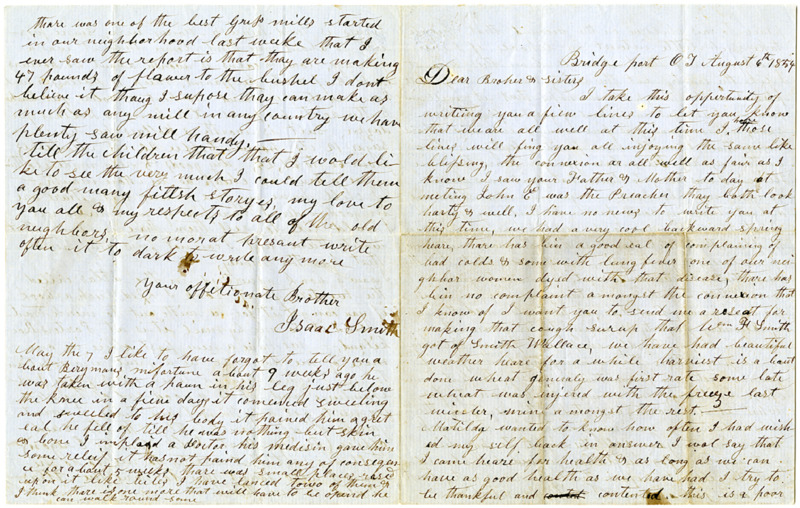 Bridge port O T August 6th 1854
Dear Broher & Sisters
I take this oppertunity of
writing you a fiew lines to let you know
that we are all well at this time I those
lines will fing you all injoying the same like
blessing, the connexion ar all well as fair as I
know I saw your Father & Mother to day at
meting John E was the Preacher thay both look
harty & well, I have no news to write you at
this time, we had a very cool backward spring
heare, thare has bin a good eal of complaining of
bad colds & some with lung fever one of our nei
ghbor women dyed with that disease, thare has
bin no complaint amongst the connexion that
I know of I want you to send me a reseat for
making that cough surup that Wm H Smith
got of Smith Wallace, we have had beautiful
weather heare for a while harviest is a bout
done wheat generaly was first rate some late
wheat was injered with the freeze last
winter, mine amongst the rest.
Matilda wanted to know how often I had wish
ed my self back in answer I wol say that
I came heare for health & as long as we can
have as good health as we have had I try to
be thankful and contented this is a poor
thare was one of the best Grist mills started
in our neighborhood last weeke that I
ever saw the report is that thay are making
47 pounds of flower to the bushel I dont
believe it, thoug I supose thay can make as
much as any mill in any country we have
plenty saw mill handy.
till the children that that I would li-
ke to see the very much I could tell them
a good many fittsh storyes, my love to
you all & my respects to all of the old
neighbors, no mor at presant write
often it to dark to write any more
Your offitionate Brother
Isaac Smith
May the 7 I like to have forgot to tell you a
bout Bergmans misfortune a bout 9 weeks ago he
was taken with a paun in his leg just below
the knee in a fiew days it comenced swelling
and swelled to his body it pained him a gret
eal he fell of till he was nothing but skin
& bone I imployed a Doctor his medisin gave him
some relief it has not pained him any of conseqen
ce for a bout 5 weeks thare was small places raised
upon it like biles I have lanced towo of them &
I think there is one more that will have to be opend he
can walk round some